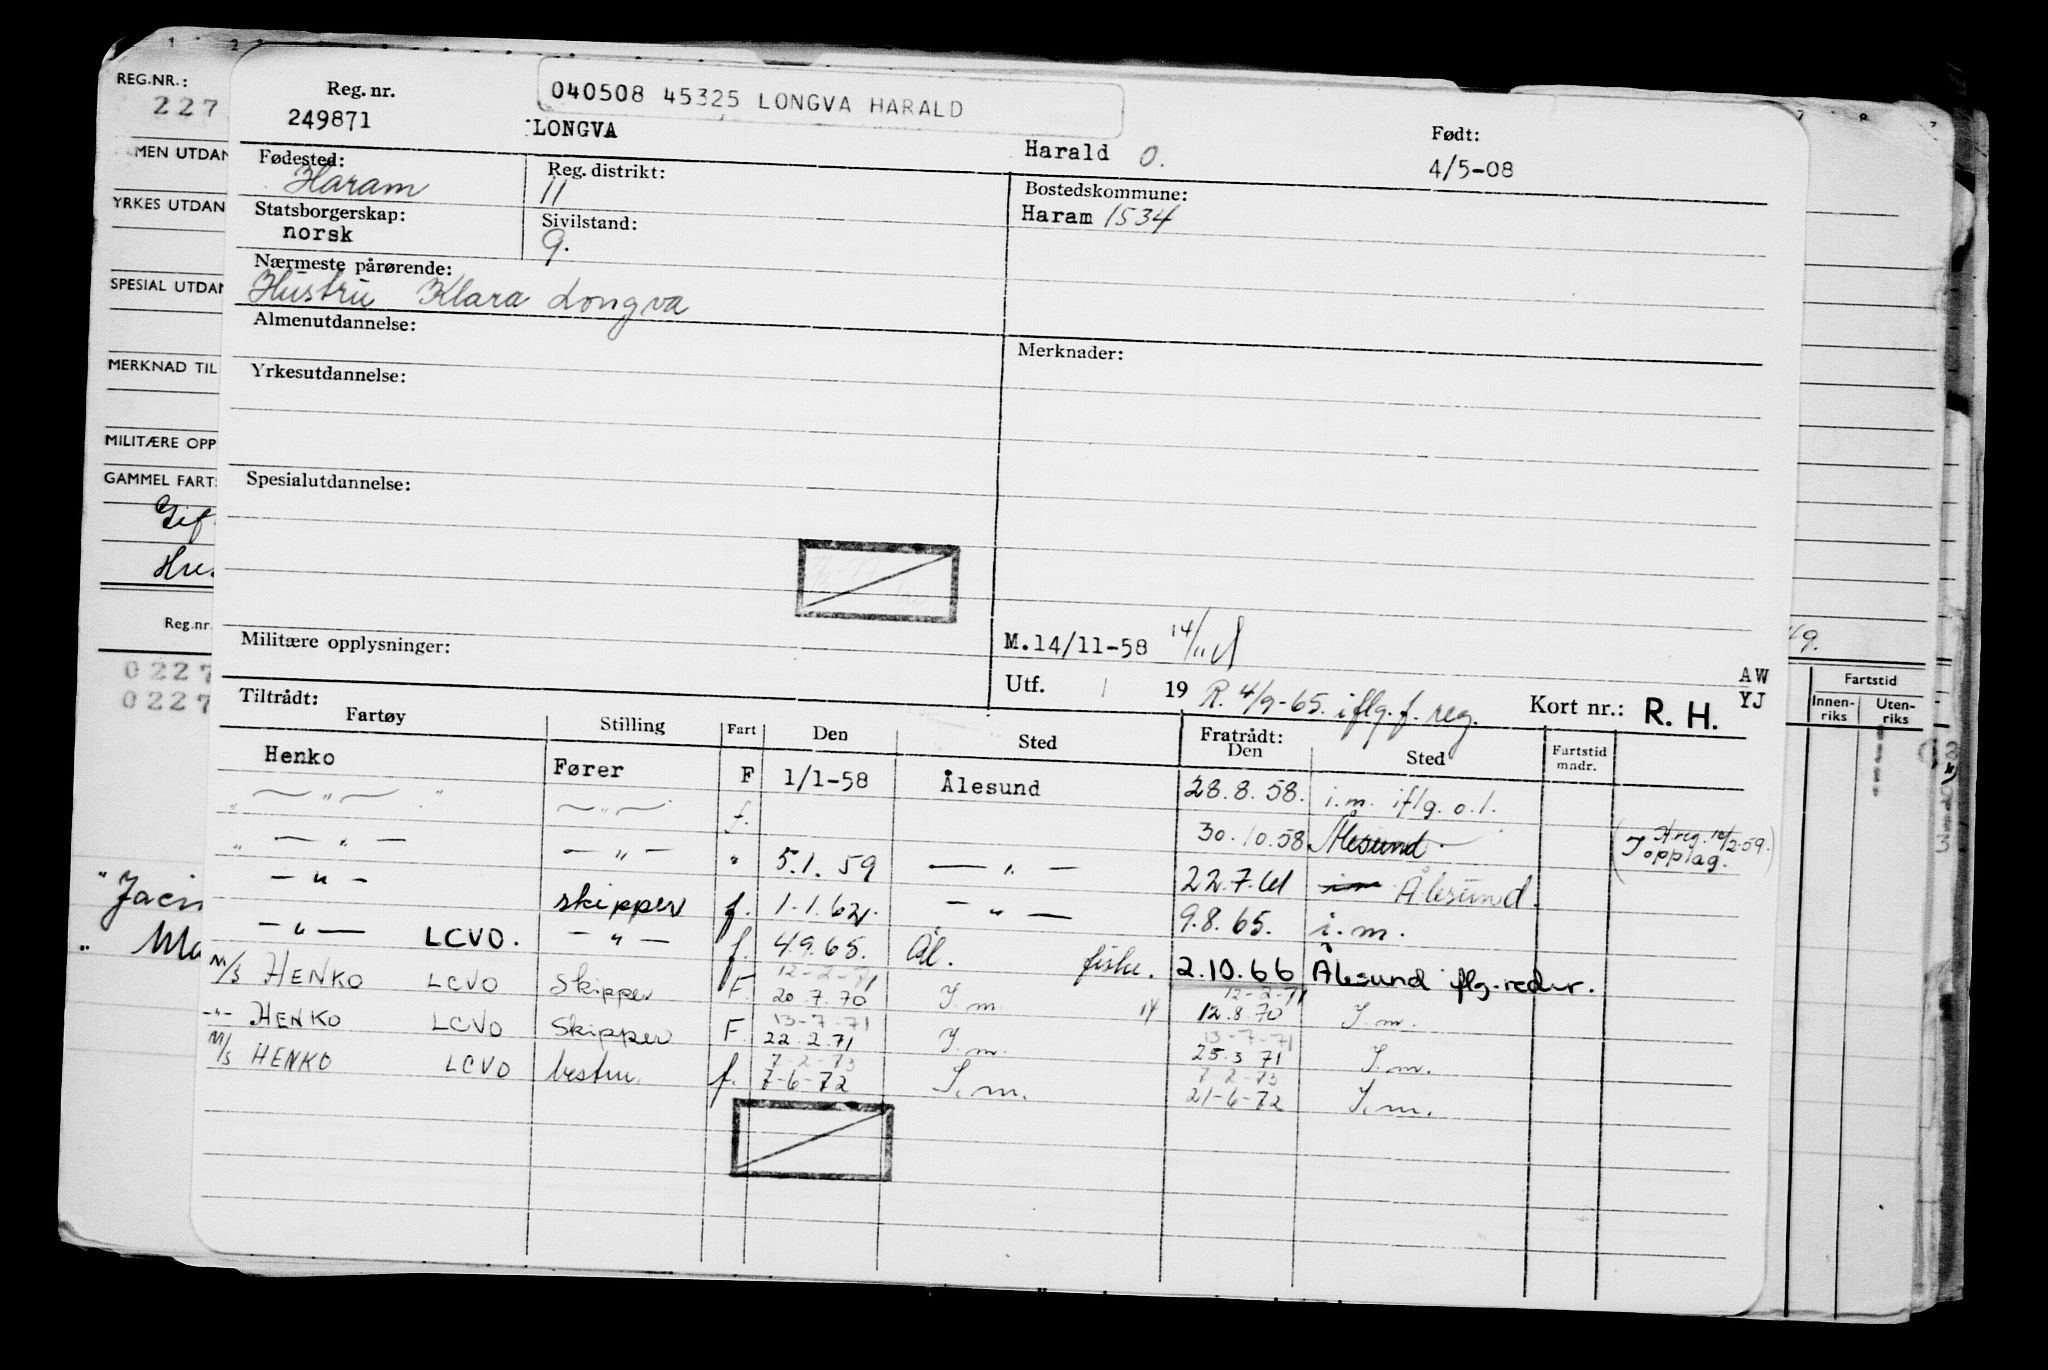 REG.NR.:
227
Reg. nr.
249871
040508 45325 LONGVA HARALD
LONGVA
Harald O.
Født:
4/5-08
MEN UTDAN
Fødested:
Haram
Reg. distrikt:
11
Bostedskommune:
Haram 1534
YRKES UTDAN
Statsborgerskap:
norsk
Sivilstand:
g.
Nærmeste pårørende:
Hustru Klara Longva
SPESIAL UTDAN
Almenutdannelse:
Merknader:
MERKNAD TIL
Yrkesutdannelse:
MILITÆRE OPP
GAMMEL FARTS
Spesialutdannelse:
Gif
Hus
Reg.nr.
Militære opplysninger:
M.14/11-58 14/11
49.
0227
0227
Utf. 1 19 R. 4/9-65. iflg. f. reg. Kort nr.: R. H.
AW
YJ
Fartstid
Innen-
riks
Uten-
riks
Tiltrådt:
Fartøy Stilling Fart Den Sted Fratrådt:
Den Sted Fartstid
mndr.
Henko Fører F 1/1-58 Ålesund 28.8.58. i.m. iflg. o.l.
" — " — " — " — f. 30.10.58 Ålesund (Å reg. 10/2-59.
I opplag.)
" — " — — " — " 5.1.59 — " — 22.7.61 im Ålesund.
— " — skipper f. 1.1.62. — " — 9.8.65. i.m.
— " — LCVO. — " — f. 4.9.65. Ål. fiske. 2.10.66 Ålesund iflg. reder.
12-2-71 12-2-71
M/S HENKO LCVO Skipper F. 20.7.70 I.m. 14 12.8.70 I.m.
13-7-71 13-7-71
-"- HENKO LCVO Skipper F. 22.2.71 I.m. 25.3.71 I.m.
7-2-73 7-2-73
M/S HENKO LCVO bestm. f. 7-6-72 I.m. 21-6-72 I.m.
"Jacin
" Ma